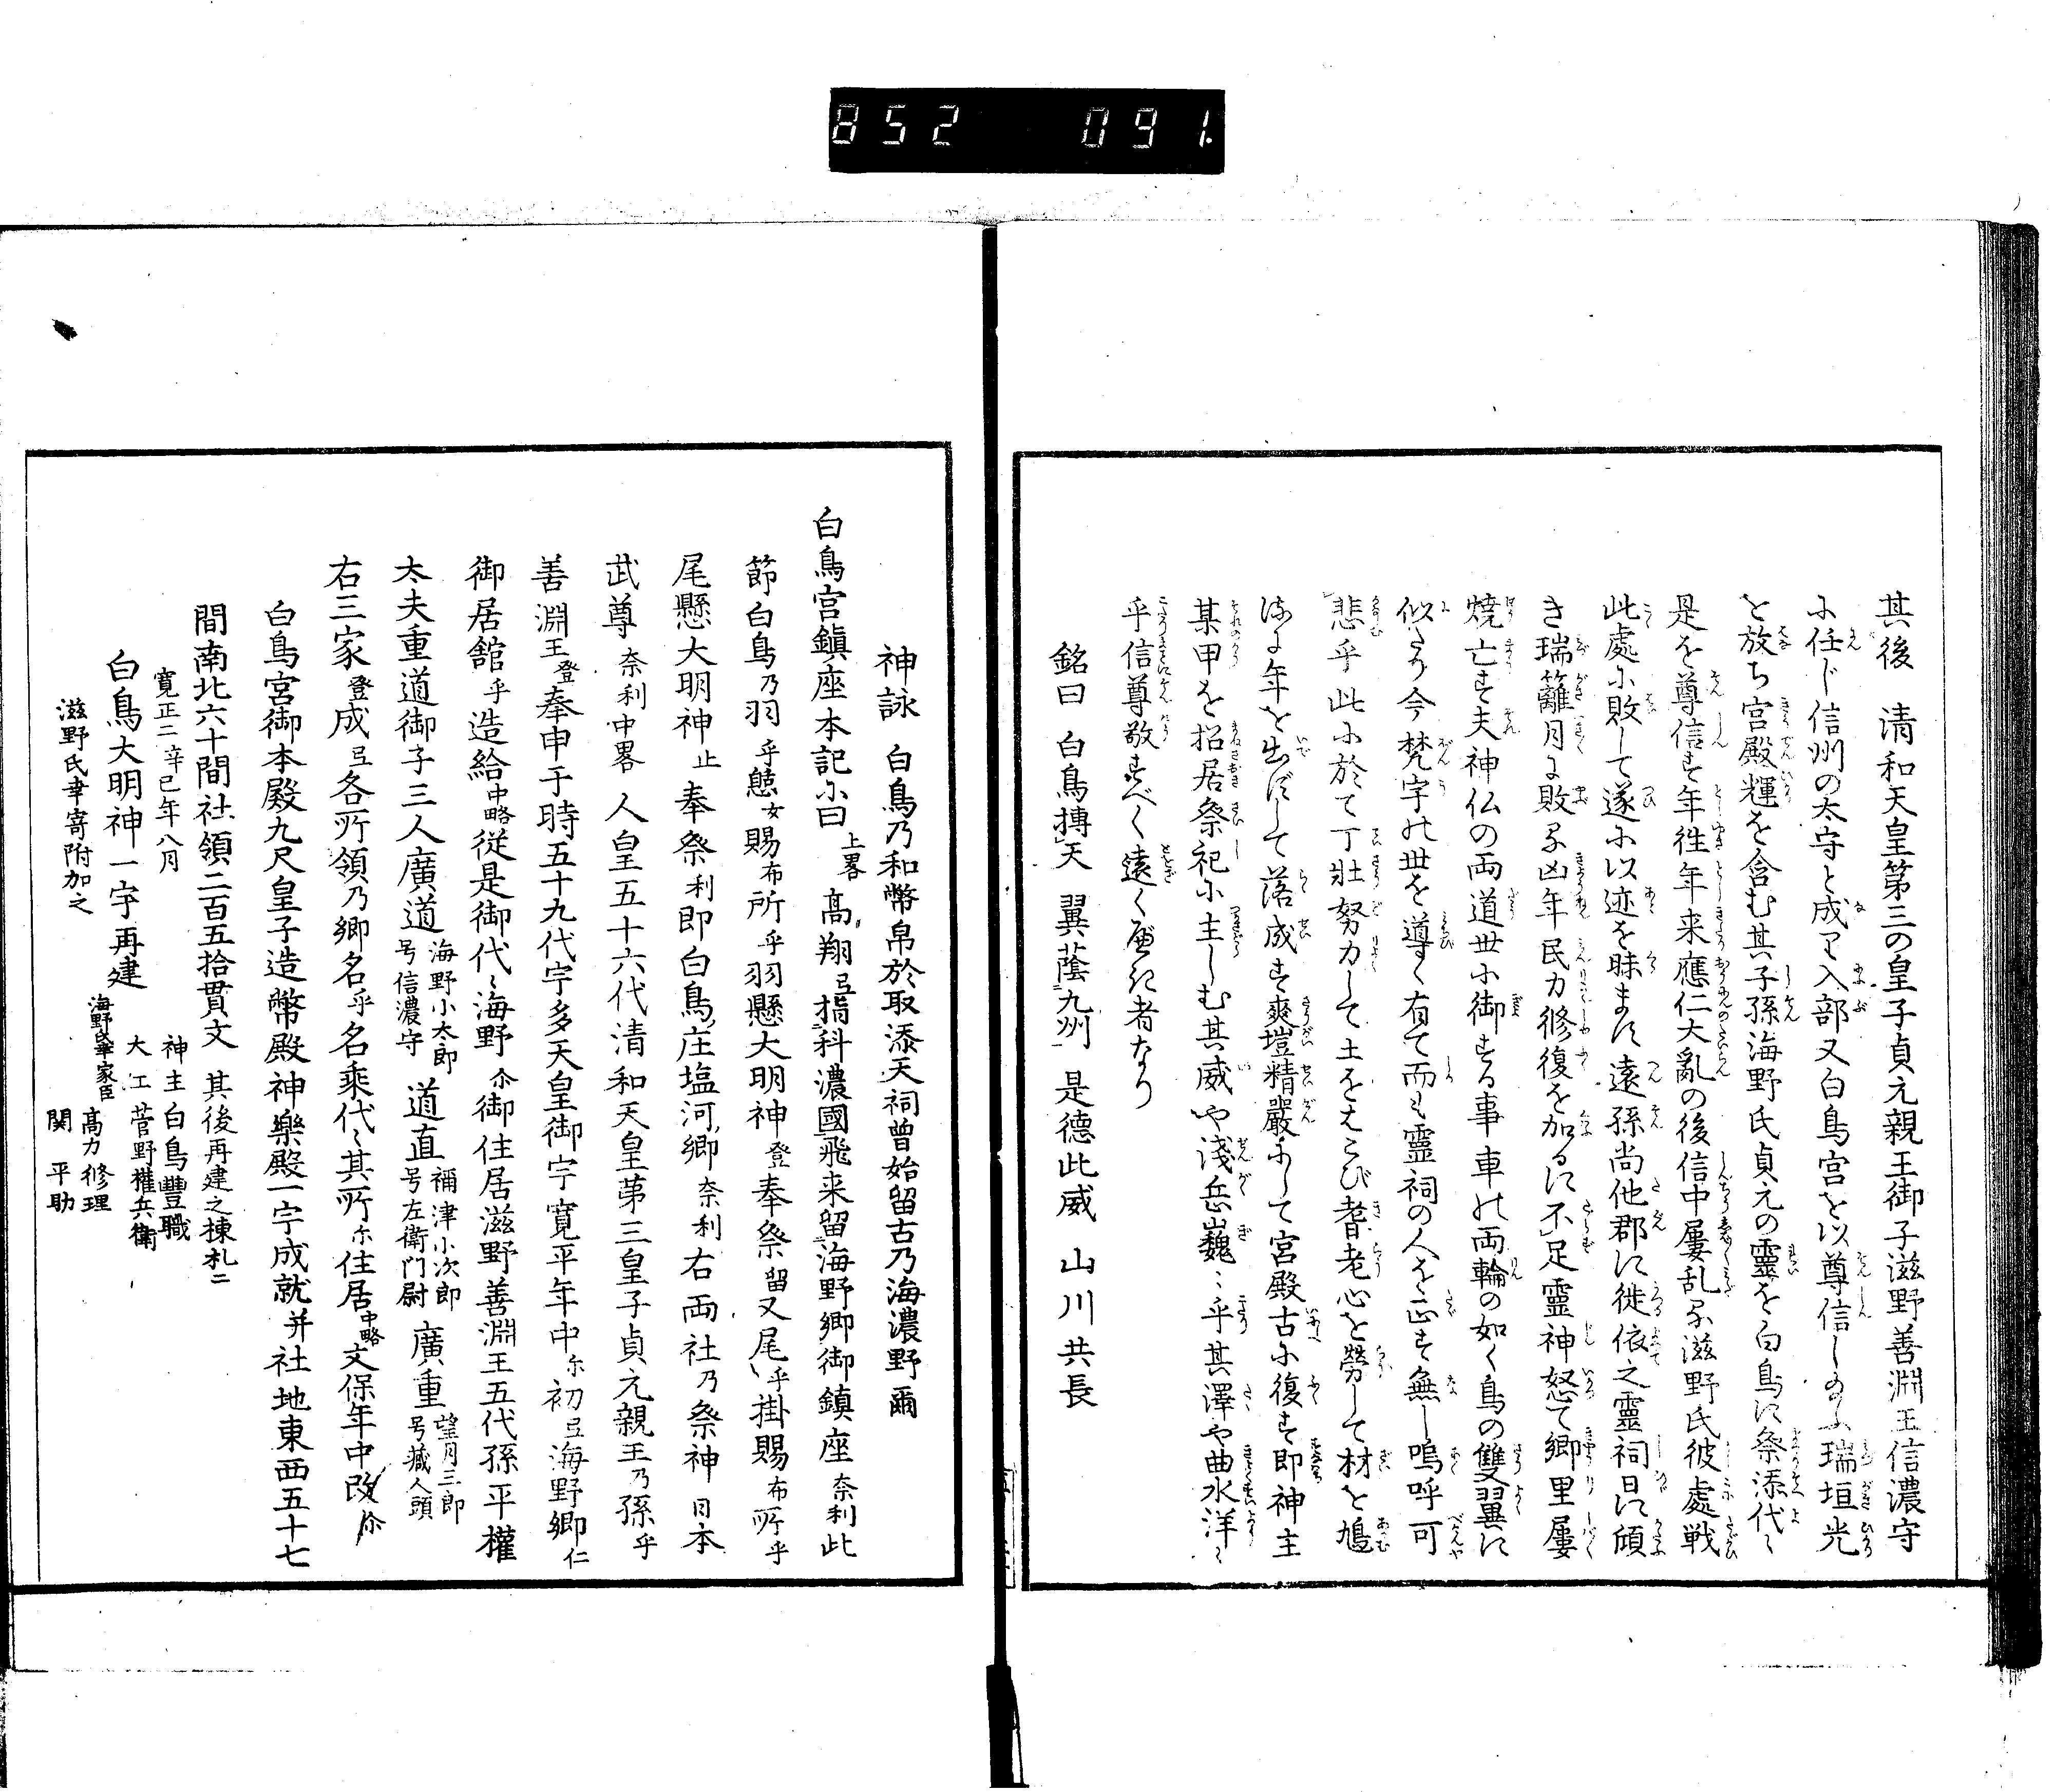 852 091.
其後 清和天皇第三の皇子貞元親王御子滋野善淵王信濃守
に任じ信州の太守と成て入部又白鳥宮を以尊信し給ふ瑞垣光
を放ち宮殿輝を含む其子孫海野氏貞元の靈を白鳥に祭添代〻
是を尊信す年往年来應仁大亂の後信中屢乱る滋野氏彼處戦
此處に敗して遂に以迹を昧ます遠孫尚他郡に徙依之靈祠日に頽
き瑞籬月に敗る凶年民力修復を加るに不足靈神怒て郷里屢
焼亡す夫神仏の両道世に御する事車の両輪の如く鳥の雙翼に
似たり今梵宇の世を導く有て而も靈祠の人を正す無し嗚呼可
悲乎此に於て丁壯努力して土をはこび耆老心を勞して材を鳩
年を出ずして落成す爽塏精嚴にして宮殿古に復す即神主
某甲を招居祭祀に主しむ其威や淺岳巍〻乎其澤や曲水洋〻
乎信尊敬すべく遠く者なり
銘曰 白鳥摶天 翼蔭九州 是德此威 山川共長
神詠 白鳥乃和幣帛於取添天祠曽始留古乃海濃野爾
白鳥宮鎭座本記に曰 上畧 髙翔弖指科濃國飛来留海野郷御鎮座奈利此
節白鳥乃羽乎慦女賜布所乎羽懸大明神登奉祭留又尾乎掛賜布所乎
尾懸大明神止奉祭利即白鳥庄塩河郷奈利右両社乃祭神日本
武尊奈利中畧 人皇五十六代清和天皇第三皇子貞元親王乃孫乎
善淵王登奉申于時五十九代宇多天皇御宇寛平年中尓初弖海野郷仁
御居舘乎造給中略從是御代〻海野尒御住居滋野善淵王五代孫平權
太夫重道御子三人廣道海野小太郎号信濃守 道直禰津小次郎号左衛門尉 廣重望月三郎号藏人頭
右三家登成弖各所領乃郷名乎名乘代〻其所尓住居中略文保年中改尓
白鳥宮御本殿九尺皇子造幣殿神樂殿一宇成就并社地東西五十七
間南北六十間社領二百五拾貫文 其後再建之棟札ニ
寛正二辛巳年八月 神主白鳥豐職
白鳥大明神一宇再建 大工菅野權兵衛
滋野氏幸寄附加之 海野氏幸家臣 髙力修理
関 平助